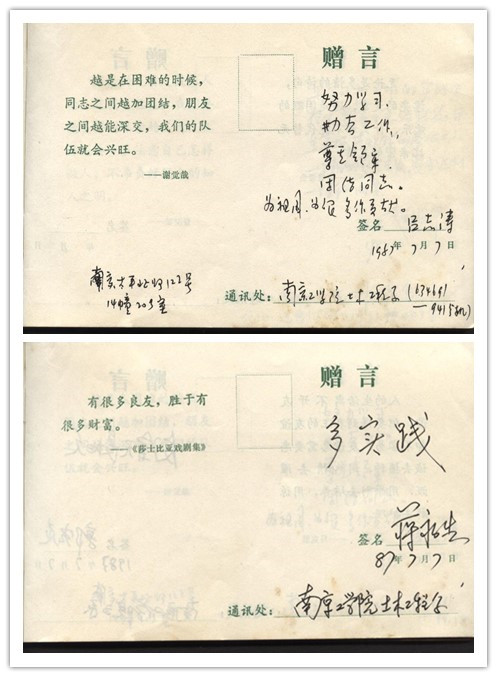 越是在困难的时候，
同志之间越加团结，朋友
之间越能深交，我们的队
伍就会兴旺。
——谢觉哉
赠言
努力学习、
勤奋工作、
尊重领导
团结同志。
为祖国、为人民多作贡献。
签名 吕志涛
1987年7月7日
南京
14幢203室
通讯处：南京工学院土木工程系
有很多良友，胜于有
很多财富。
——《莎士比亚戏剧集》
赠言
多实践
签名 蒋永生
87年7月7日
通讯处：南京工学院土木工程系